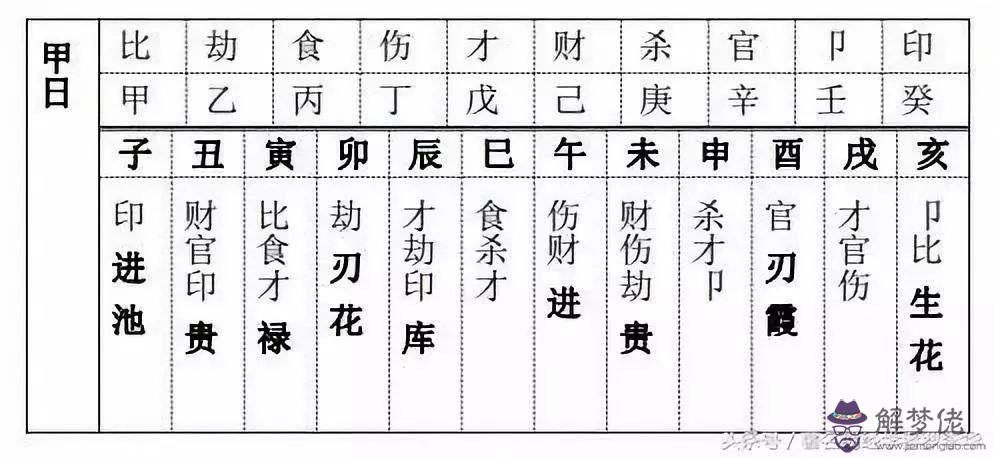 甲日
比 劫 食 伤 才 财 杀 官 卩 印
甲 乙 丙 丁 戊 己 庚 辛 壬 癸
子 丑 寅 卯 辰 巳 午 未 申 酉 戌 亥
印进池
财官印贵
比食才禄
劫刃花
才劫印库
食杀才
伤财进
财伤劫贵
杀才卩
官刃霞
才官伤
卩比生花
解梦佬
头条号